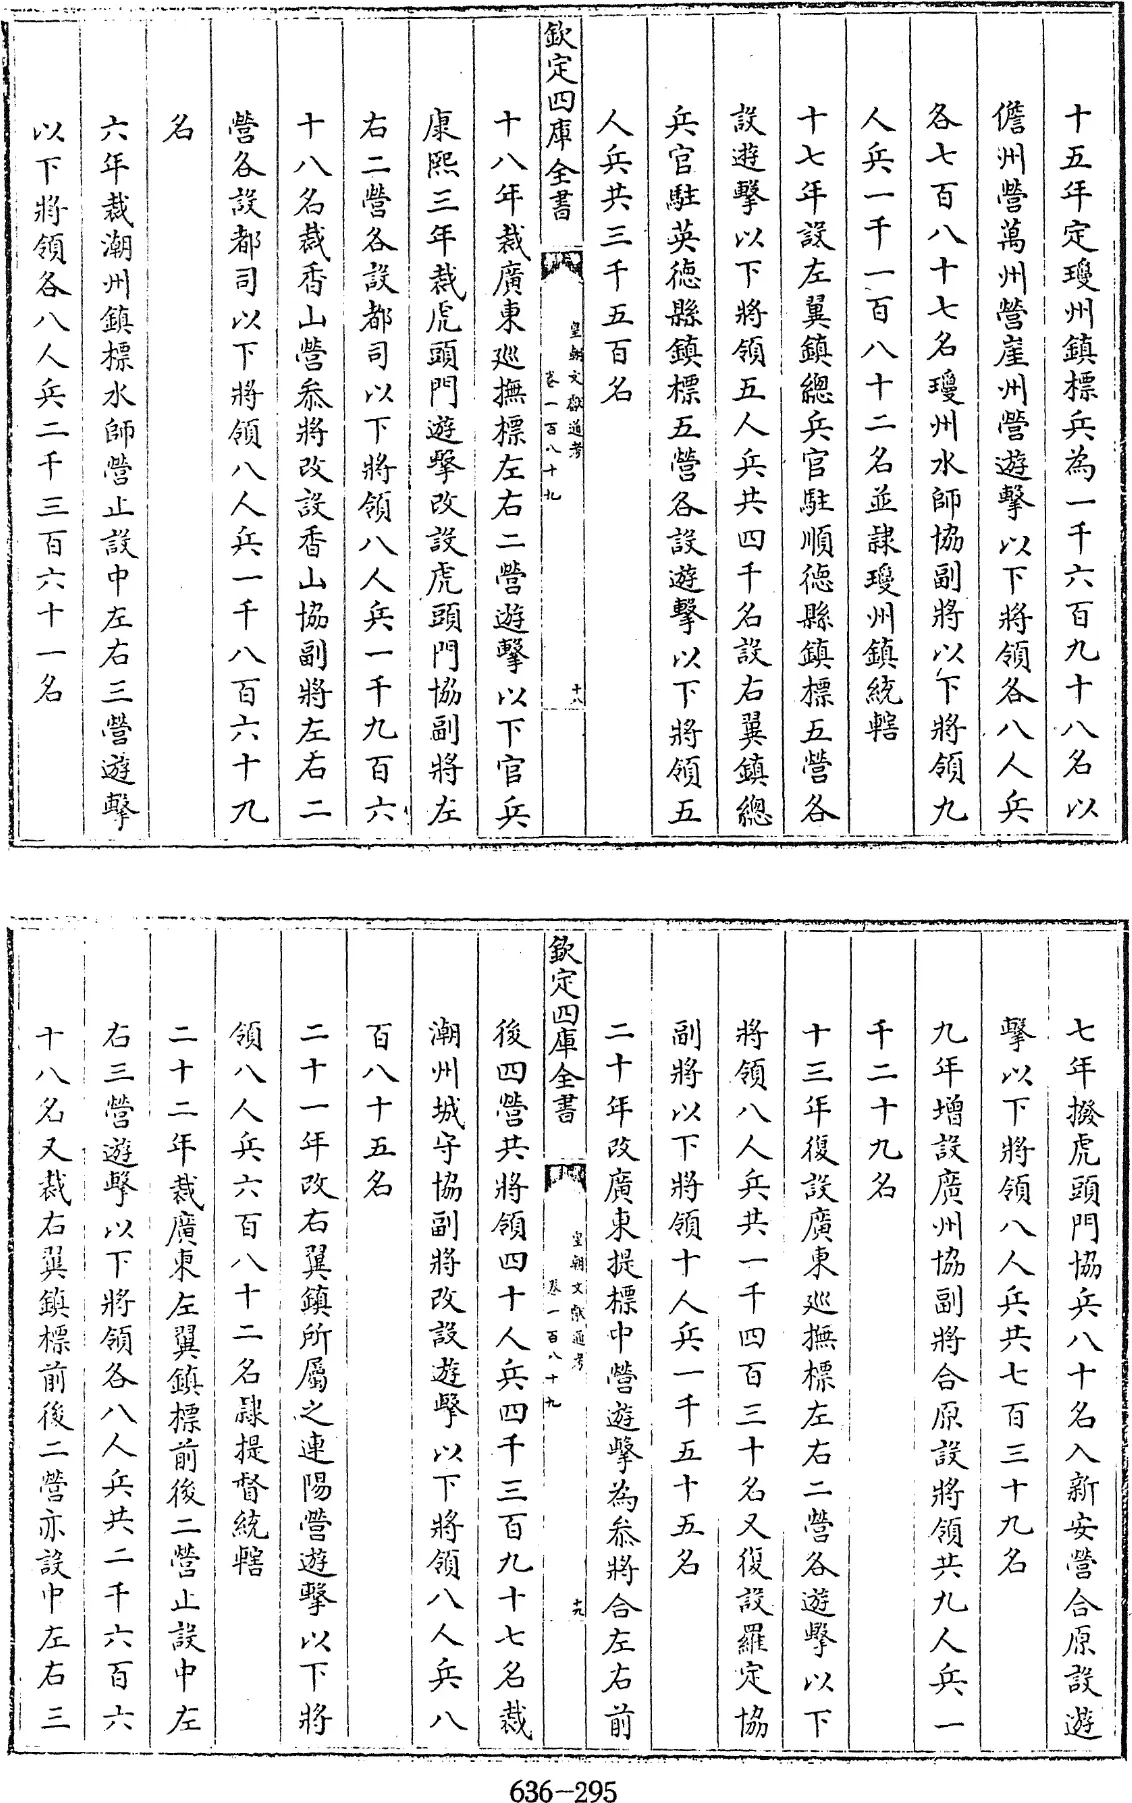 十五年定瓊州鎮標兵為一千六百九十八名以
儋州營萬州營崖州營遊擊以下將領各八人兵
各七百八十七名瓊州水師協副將以下將領九
人兵一千一百八十二名並隷瓊州鎮統轄
十七年設左翼鎮總兵官駐順德縣鎮標五營各
設遊擊以下將領五人兵共四千名設右翼鎮總
兵官駐英德縣鎮標五營各設遊擊以下將領五
人兵共三千五百名
欽定四庫全書
皇朝文獻通考
卷一百八十九
十八
十八年裁廣東廵撫標左右二營遊擊以下官兵
康熙三年裁虎頭門遊擊改設虎頭門協副將左
右二營各設都司以下將領八人兵一千九百六
十八名裁香山營叅將改設香山協副將左右二
營各設都司以下將領八人兵一千八百六十九
名
六年裁潮州鎮標水師營止設中左右三營遊擊
以下將領各八人兵二千三百六十一名
七年撥虎頭門協兵八十名入新安營合原設遊
擊以下將領八人兵共七百三十九名
九年增設廣州協副將合原設將領共九人兵一
千二十九名
十三年復設廣東廵撫標左右二營各遊擊以下
將領八人兵共一千四百三十名又復設羅定協
副將以下將領十人兵一千五十五名
二十年改廣東提標中營遊擊為叅將合左右前
欽定四庫全書
皇朝文獻通考
卷一百八十九
十九
後四營共將領四十人兵四千三百九十七名裁
潮州城守協副將改設遊擊以下將領八人兵八
百八十五名
二十一年改右翼鎮所屬之連陽營遊擊以下將
領八人兵六百八十二名隷提督統轄
二十二年裁廣東左翼鎮標前後二營止設中左
右三營遊擊以下將領各八人兵共二千六百六
十八名又裁右翼鎮標前後二營亦設中左右三
636-295